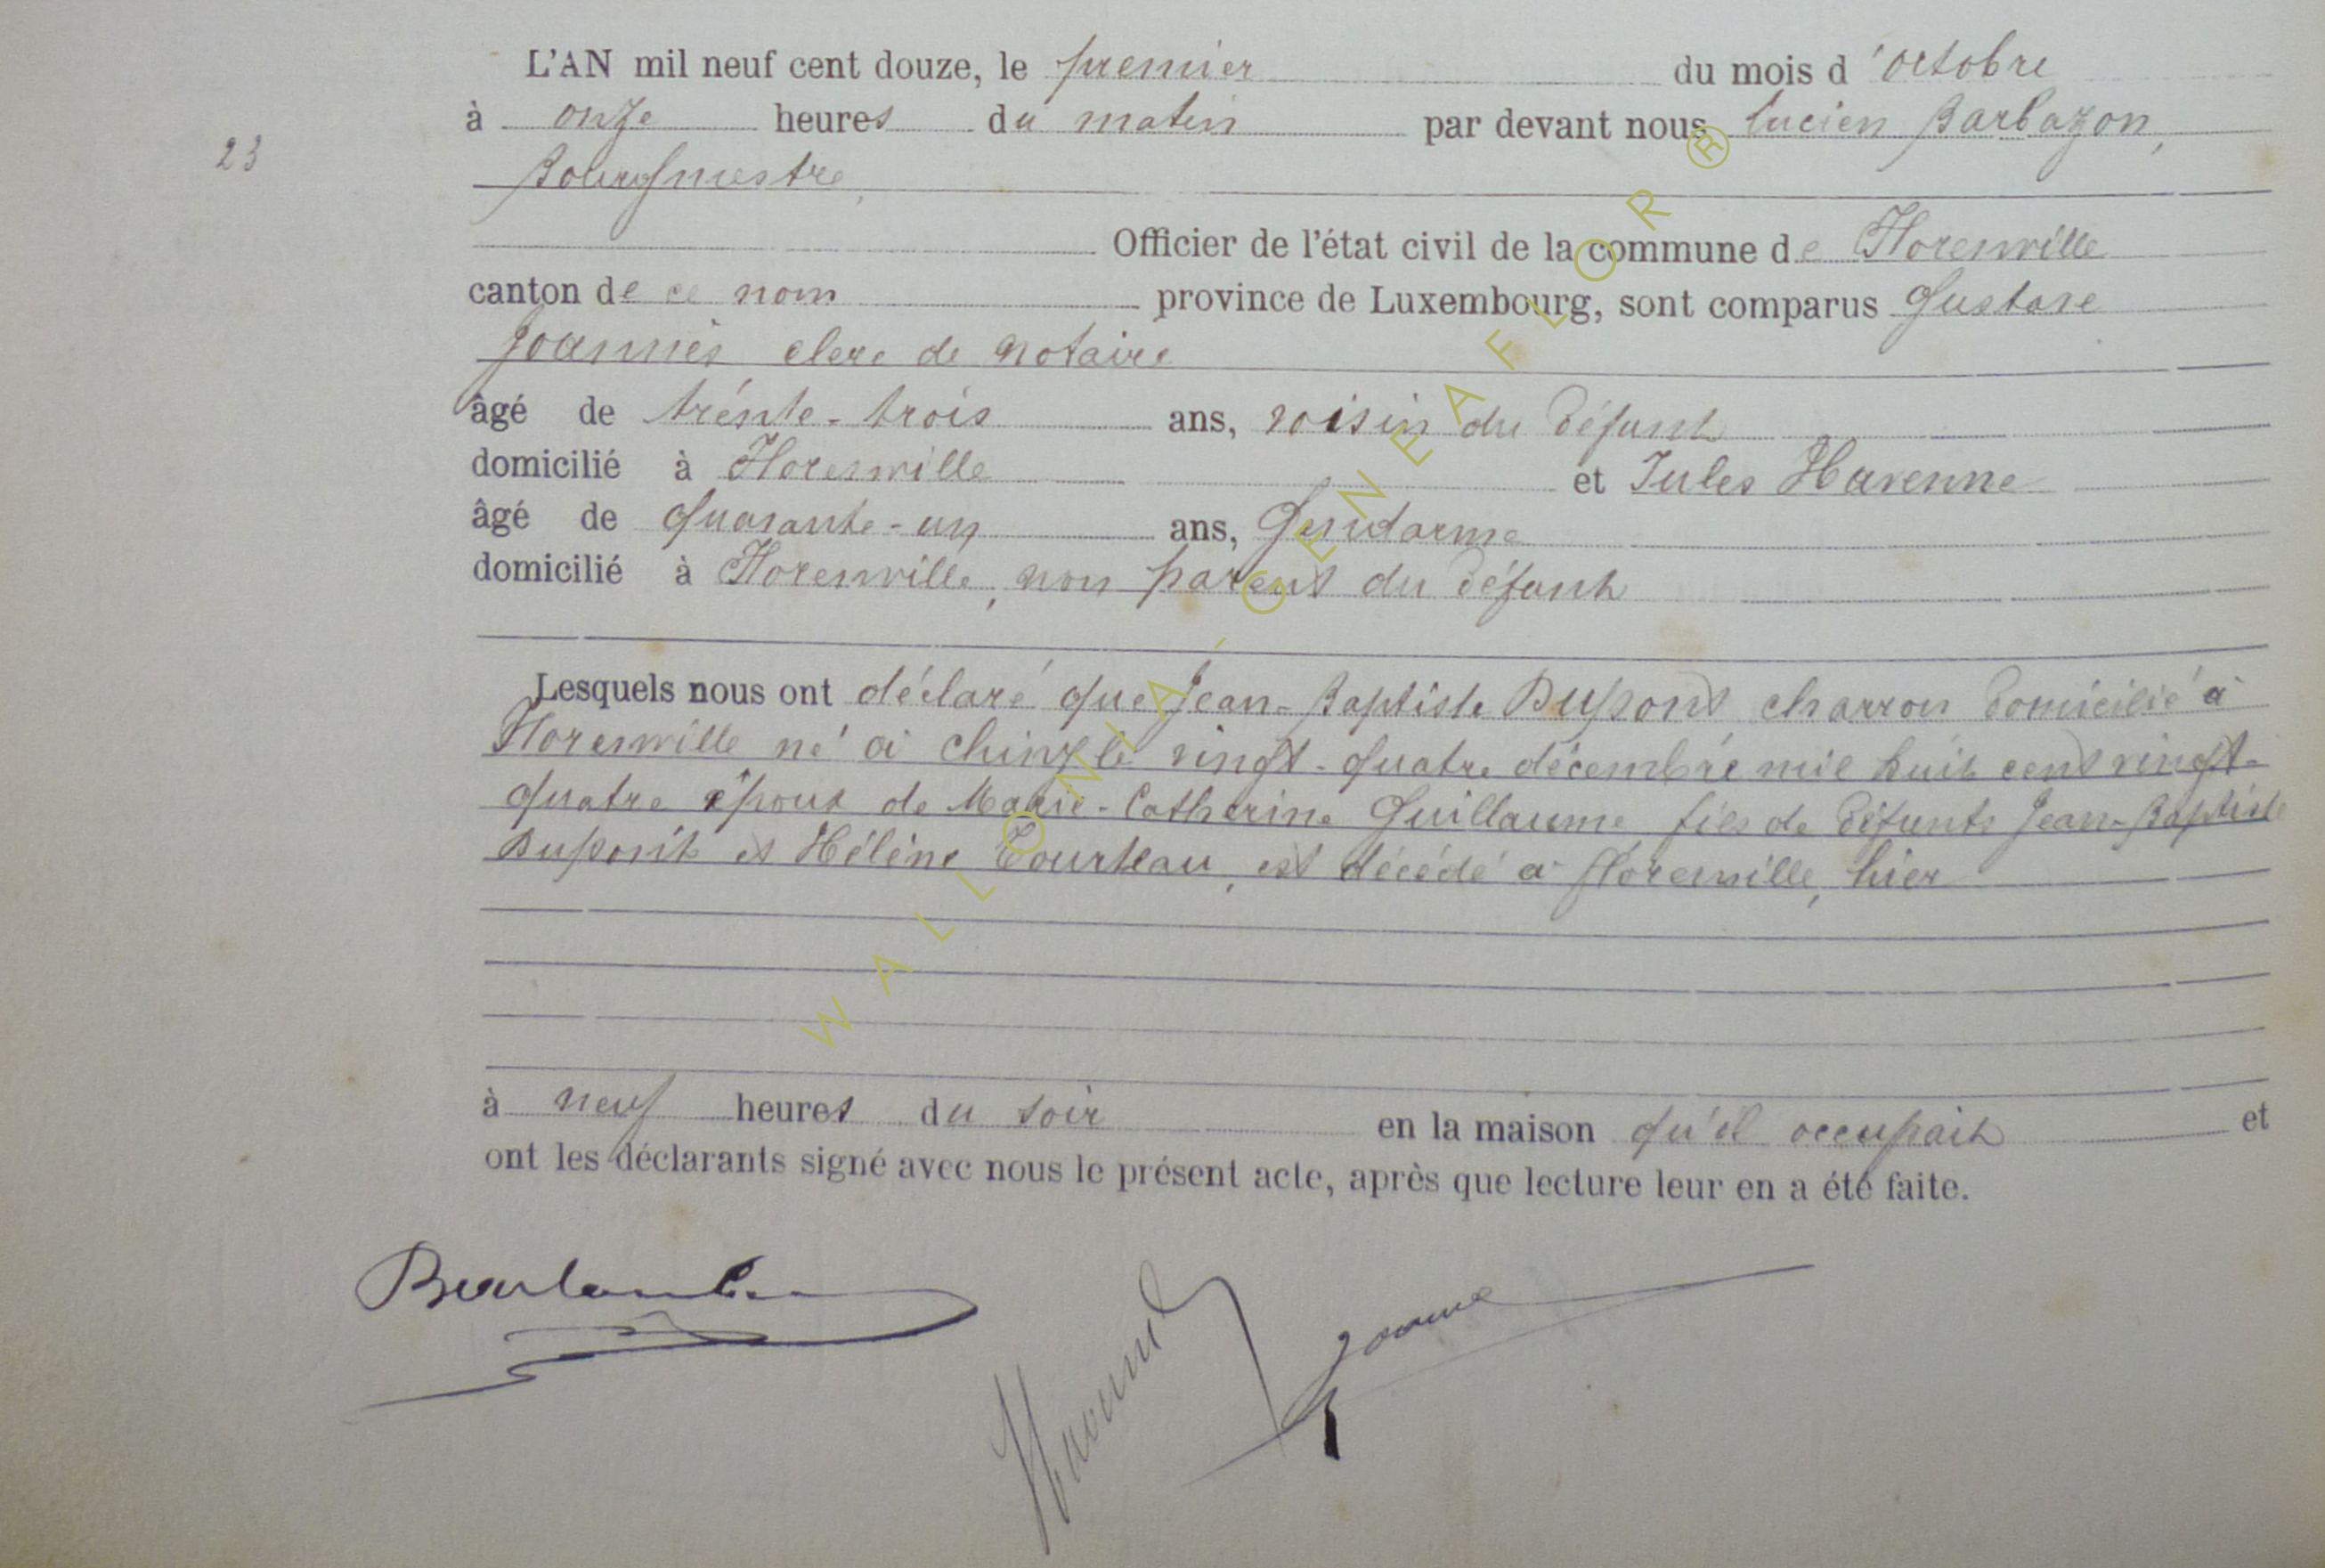 L'AN mil neuf cent douze, le premier du mois d'octobre
à onze heures du matin par devant nous Lucien Barbazon,
23
Bourgmestre,
Officier de l'état civil de la commune de Florenville
canton de ce nom province de Luxembourg, sont comparus Gustave
Joannes clerc de notaire
âgé de trente-trois ans, voisin du défunt
domicilié à Florenville et Jules Havenne
âgé de Quarante-un ans, Gendarme
domicilié à Florenville, non parent du défunt
Lesquels nous ont déclaré que Jean-Baptiste Dupont charron domicilié à
Florenville né à Chiny le vingt-quatre décembre mil huit cent vingt-
quatre époux de Marie-Catherine Guillaume fils de défunts Jean-Baptiste
Dupont et Hélène Tourteau, est décédé à Florenville, hier
à neuf heures du soir en la maison qu'il occupait et
ont les déclarants signé avec nous le présent acte, après que lecture leur en a été faite.
WALLONIA-GENEAFLOR ®